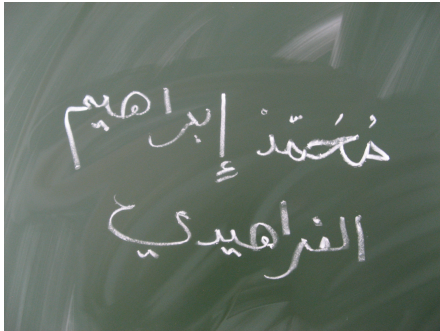 مُحَمّد إبراهيم
الفراهيدي